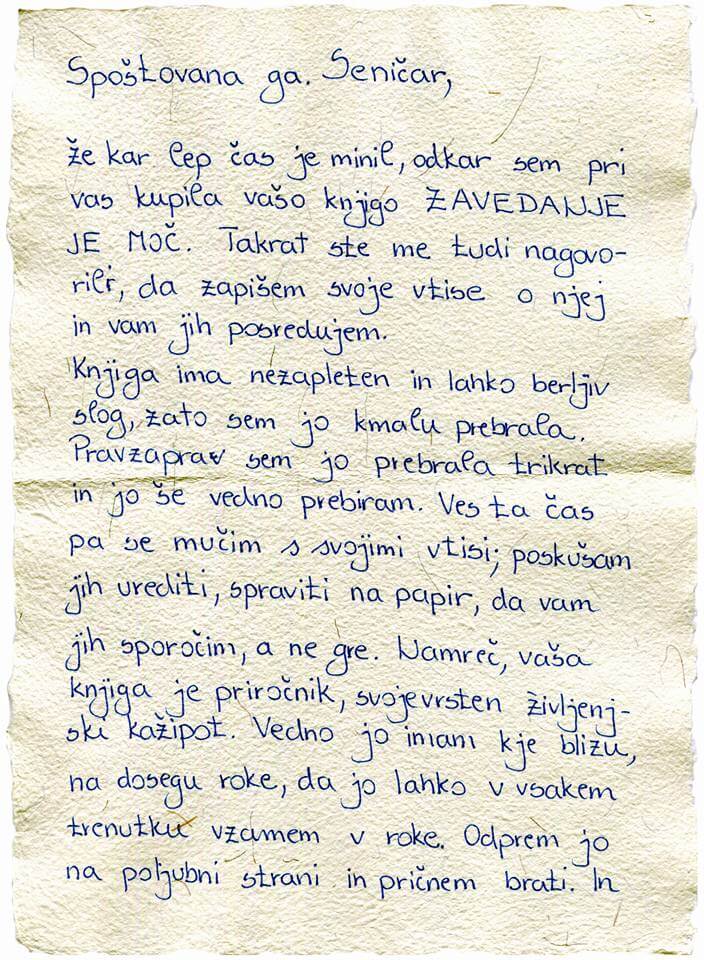 Spoštovana ga. Seničar,
že kar lep čas je minil, odkar sem pri
vas kupila vašo knjigo ZAVEDANJE
JE MOČ. Takrat ste me tudi nagovo-
rili, da zapišem svoje vtise o njej
in vam jih posredujem.
Knjiga ima nezapleten in lahko berljiv
slog, zato sem jo kmalu prebrala.
Pravzaprav sem jo prebrala trikrat
in jo še vedno prebiram. Ves ta čas
pa se mučim s svojimi vtisi; poskušam
jih urediti, spraviti na papir, da vam
jih sporočim, a ne gre. Namreč, vaša
knjiga je priročnik, svojevrsten življenj-
ski kažipot. Vedno jo imam kje blizu,
na dosegu roke, da jo lahko v vsakem
trenutku vzamem v roke. Odprem jo
na poljubni strani in pričnem brati. In